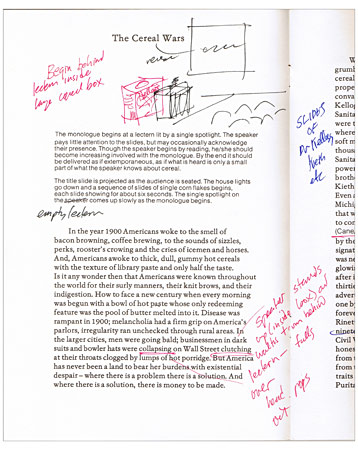 The Cereal Wars
Begin behind
lectern inside
large cereal box
The monologue begins at a lectern lit by a single spotlight. The speaker
pays little attention to the slides, but may occasionally acknowledge
their presence. Though the speaker begins by reading, he/she should
become increasing involved with the monologue. By the end it should
be delivered as if extemporaneous, as if what is heard is only a small
part of what the speaker knows about cereal.
The title slide is projected as the audience is seated. The house lights
go down and a sequence of slides of single corn flakes begins,
each slide showing for about six seconds. The single spotlight on
the speaker comes up slowly as the monologue begins.
empty lectern
In the year 1900 Americans woke to the smell of
bacon browning, coffee brewing, to the sounds of sizzles,
perks, rooster's crowing and the cries of icemen and horses.
And, Americans awoke to thick, dull, gummy hot cereals
with the texture of library paste and only half the taste.
Is it any wonder then that Americans were known throughout
the world for their surly manners, their knit brows, and their
indigestion. How to face a new century when every morning
was begun with a bowl of hot paste whose only redeeming
feature was the pool of butter melted into it. Disease was
rampant in 1900; melancholia had a firm grip on America's
parlors, irregularity ran unchecked through rural areas. In
the larger cities, men were going bald; businessmen in dark
suits and bowler hats were collapsing on Wall Street clutching
at their throats clogged by lumps of hot porridge. But America
has never been a land to bear her burdens with existential
despair – where there is a problem there is a solution. And
where there is a solution, there is money to be made.
SLIDES
OF
Dr Kellogg
etc
Speaker stands
up (inside box) and
walks from behind
lectern – falls
over
head pops
out
W
grumb
cereal
proper
conval
Kellog
Sanita
were t
where
soft m
thousa
Sanita
power
brothe
Kieth
Even a
Michig
that w
to con
(Cane,
by the
signat
was ne
glowin
after i
thirtie
advert
one by
foreve
Rinet
ninete
Civil W
honest
from t
from t
traits
Purita